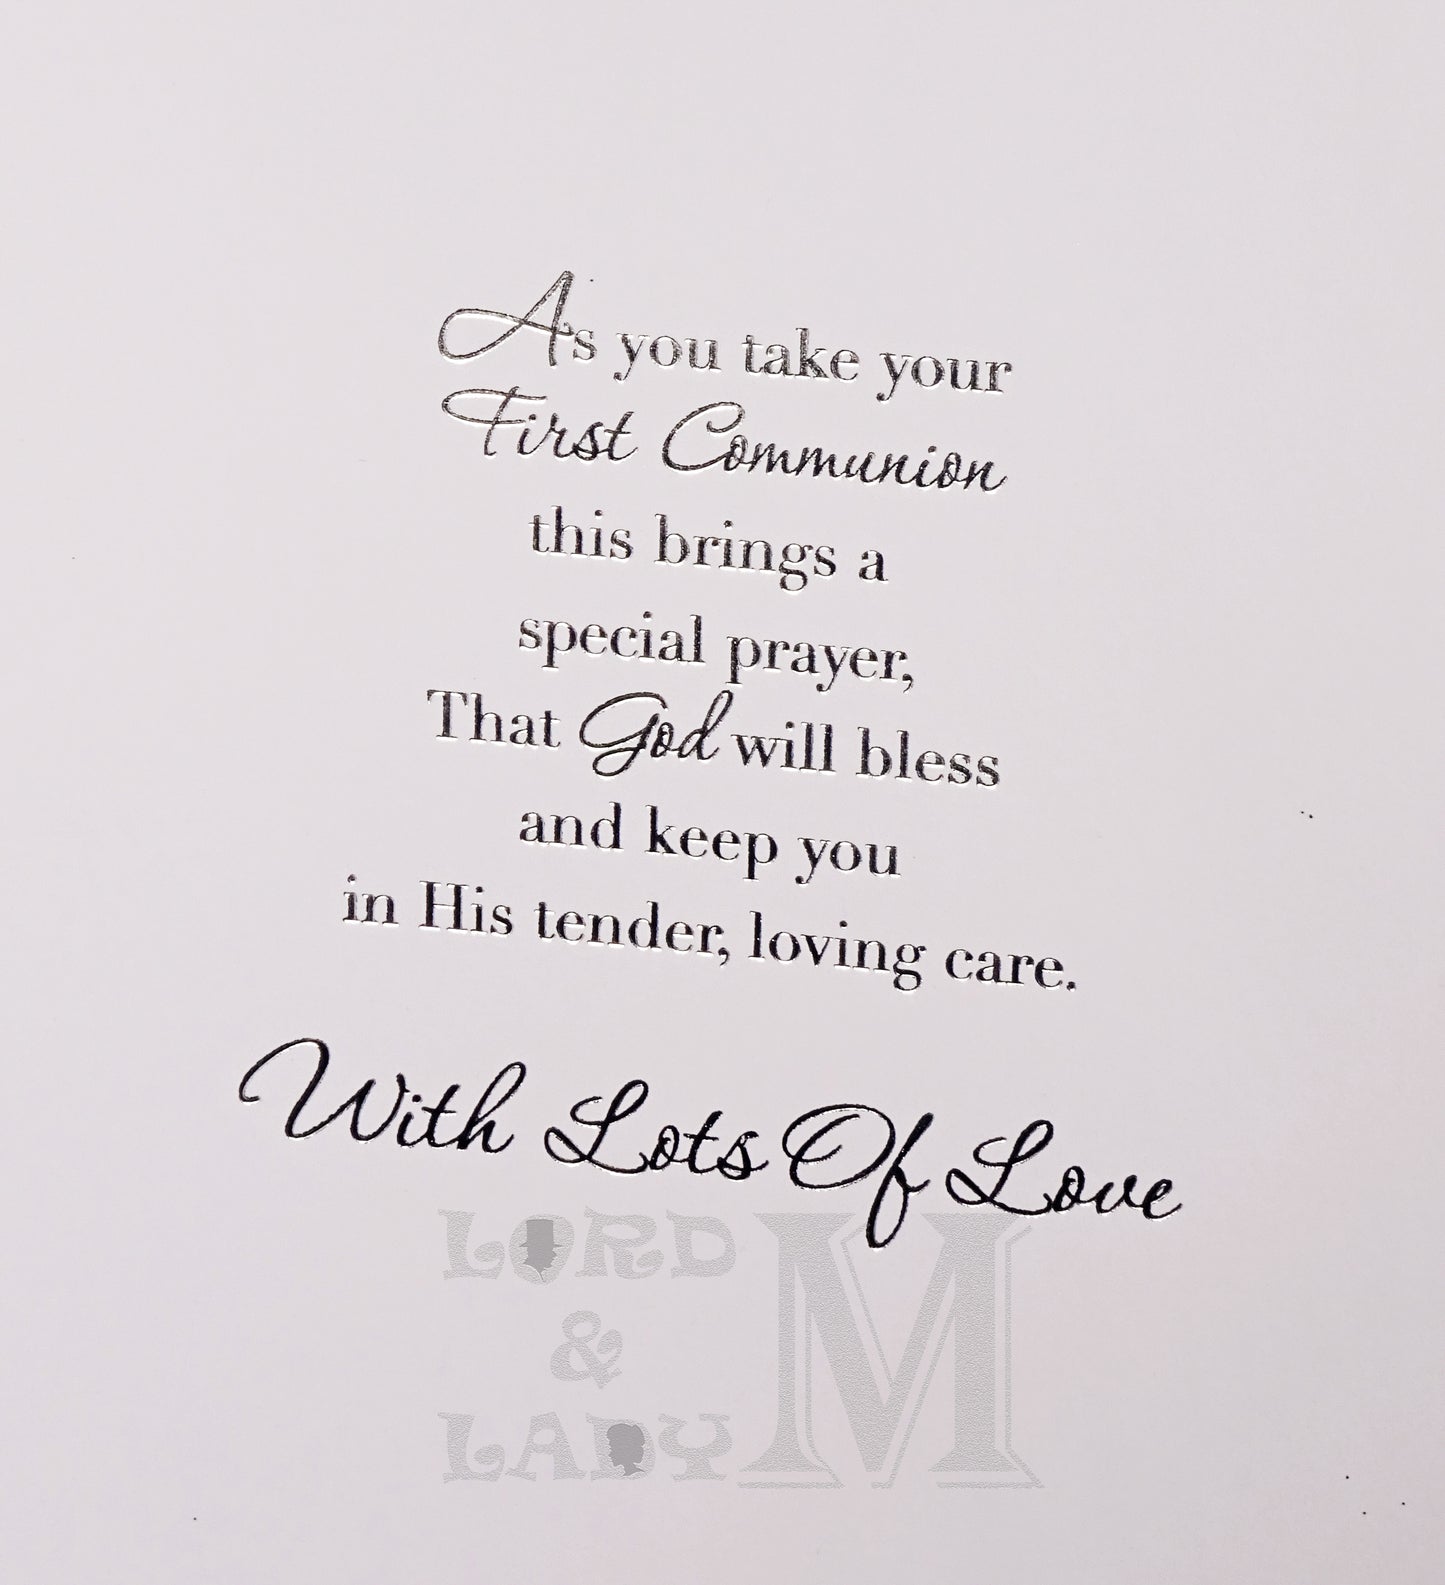 As you take your
First Communion
this brings a
special prayer,
That God will bless
and keep you
in His tender, loving care.
With Lots Of Love
LORD
&
LADY
M